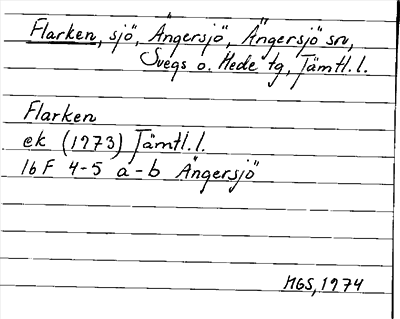 Flarken, sjö, Ängersjö, Ängersjö sn,
Svegs o. Hede tg, Jämtl. l.
Flarken
ek (1973) Jämtl. l.
16F 4-5 a-b Ängersjö
MGS, 1974